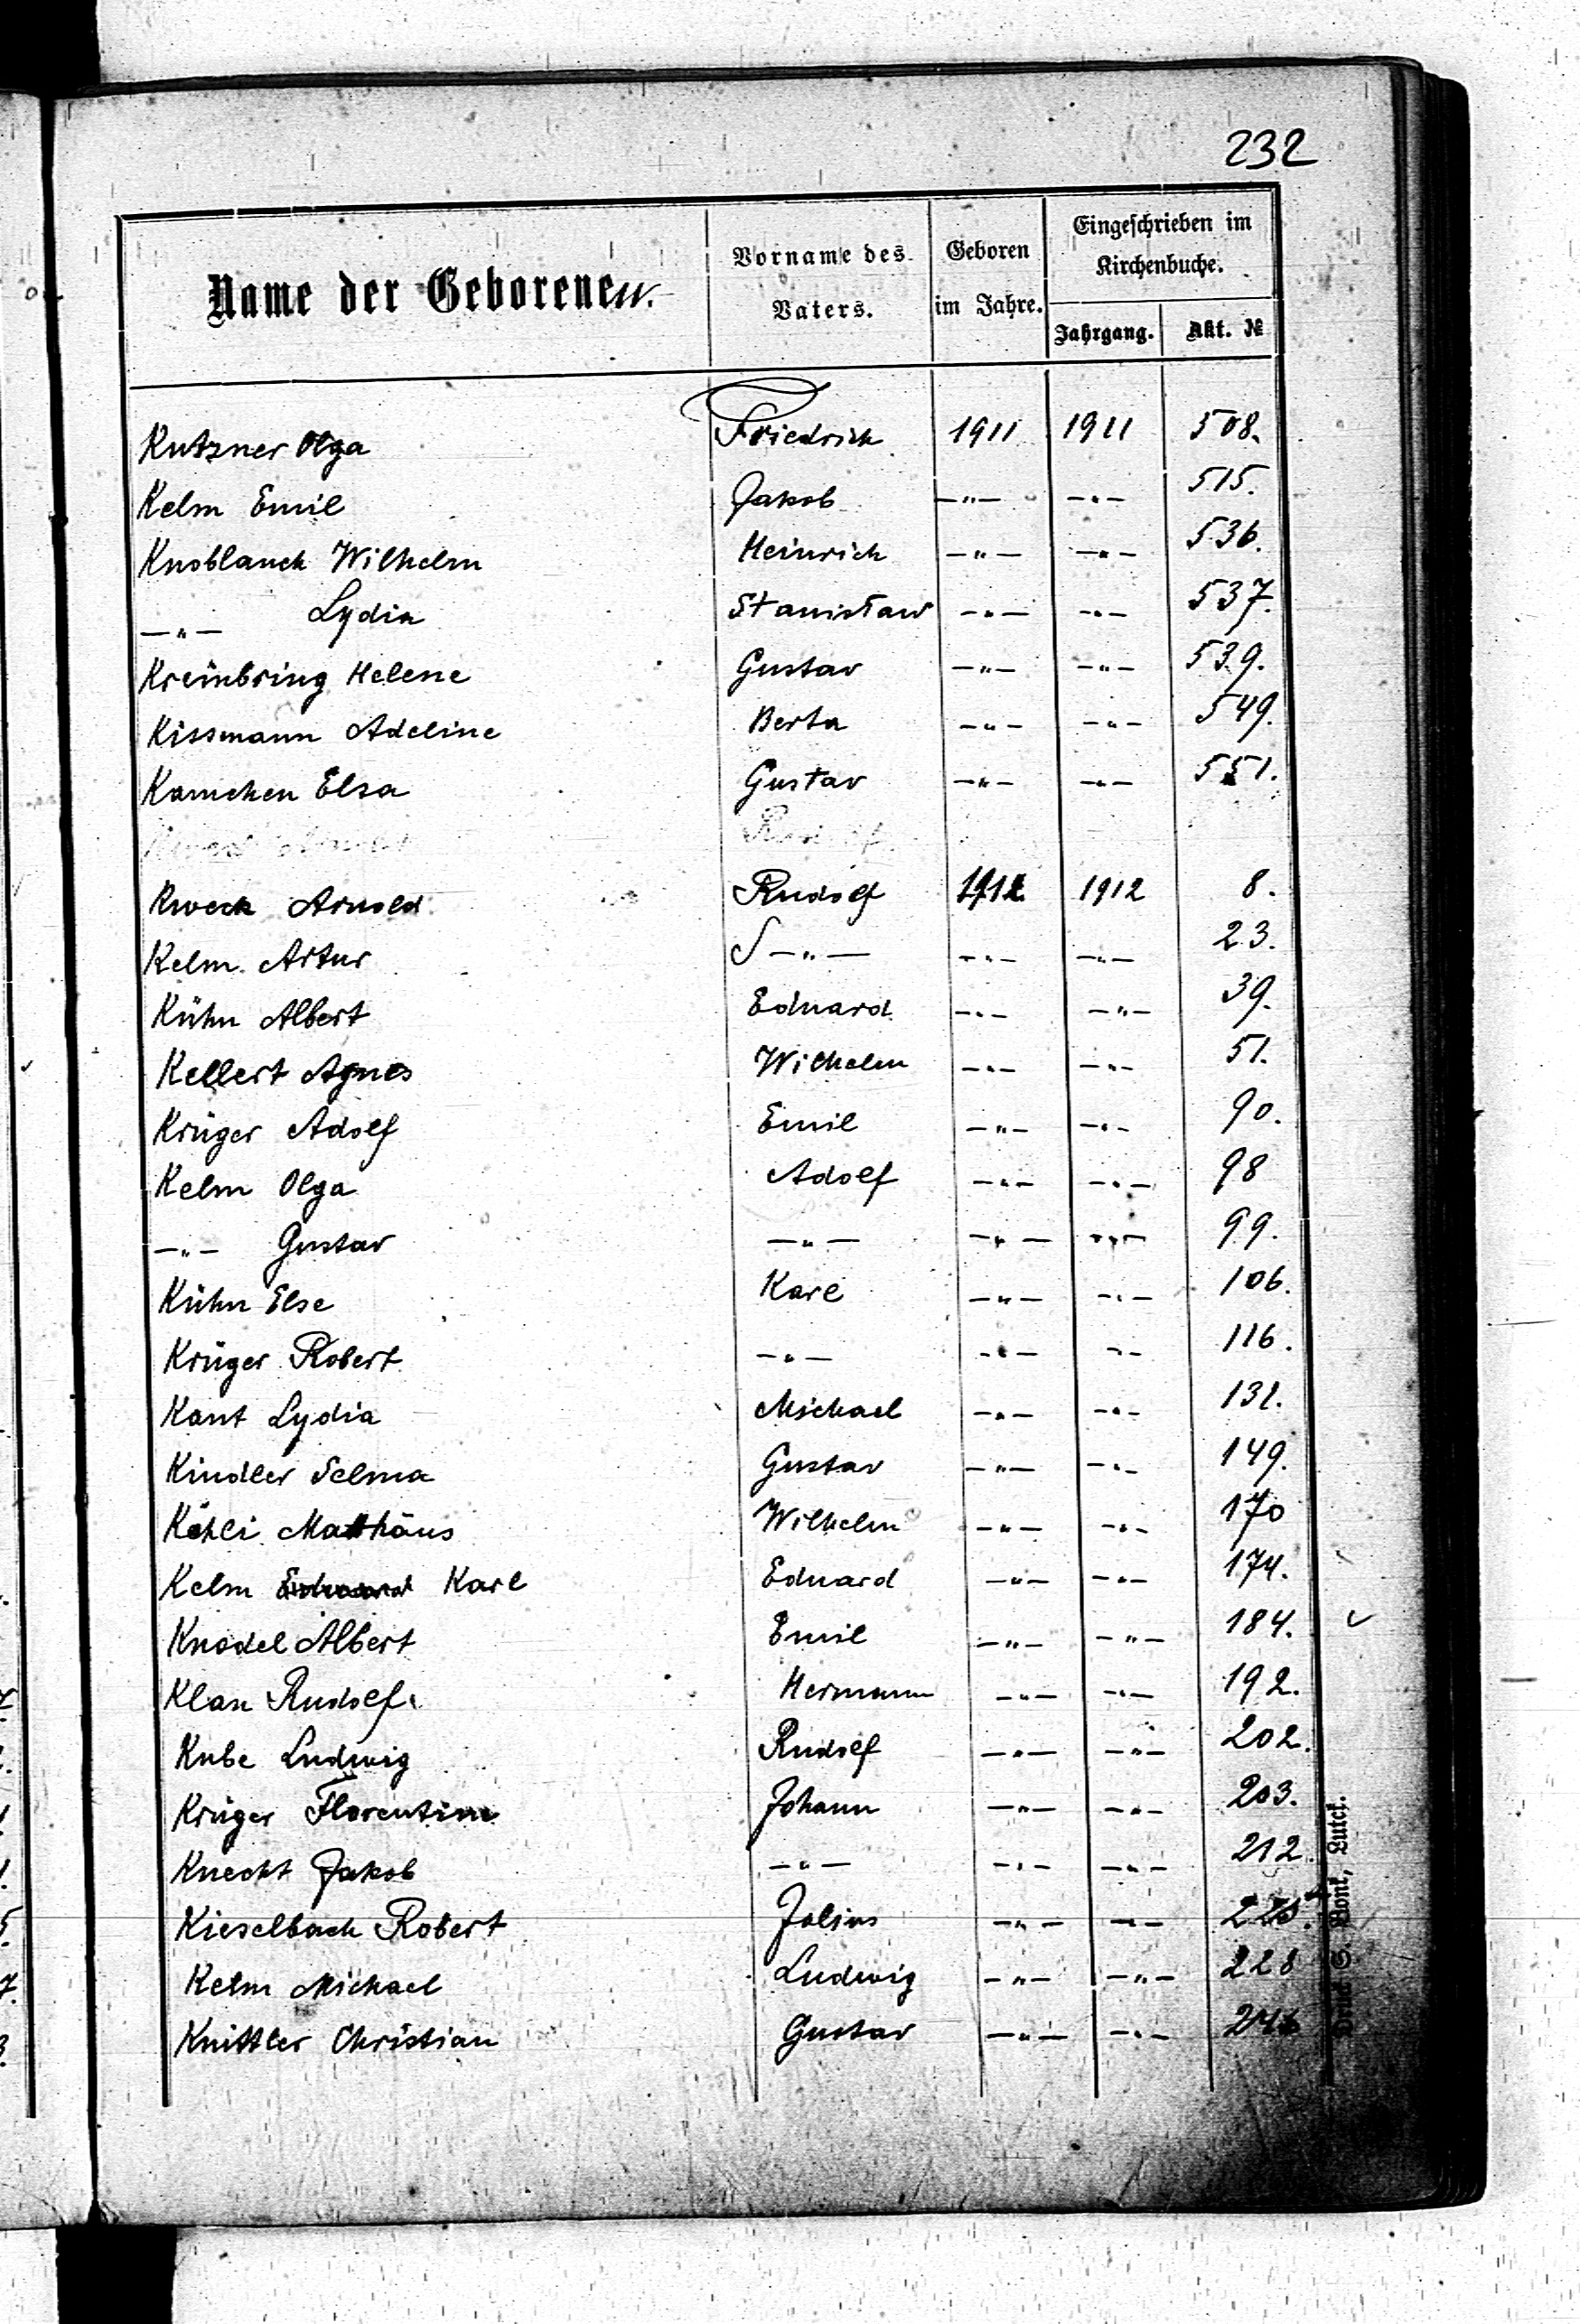 232
Name der Geborenen.
Vorname des Vaters.
Geboren im Jahre.
Eingeschrieben im Kirchenbuche.
Jahrgang. Akt. №
Kutzner Olga Friedrich 1911 1911 508.
Kelm Emil Jakob —"— —"— 515.
Knoblauch Wilhelm Heinrich —"— —"— 536.
—"— Lydia Stanisław —"— —"— 537.
Kreinbring Helene Gustav —"— —"— 539.
Kissmann Adeline Berta —"— —"— 549.
Kamchen Elsa Gustav —"— —"— 551.
Kweck Arnold Rudolf 1912 1912 8.
Kelm Artur —"— —"— —"— 23.
Kühn Albert Eduard —"— —"— 39.
Kellert Agnes Wilhelm —"— —"— 51.
Krüger Adolf Emil —"— —"— 90.
Kelm Olga Adolf —"— —"— 98
—"— Gustav —"— —"— —"— 99.
Kühn Else Karl —"— —"— 106.
Krüger Robert —"— —"— —"— 116.
Kant Lydia Michael —"— —"— 131.
Kindler Selma Gustav —"— —"— 149.
Köhli Matthäus Wilhelm —"— —"— 170
Kelm Eduard Karl Eduard —"— —"— 174.
Knodel Albert Emil —"— —"— 184.
Klan Rudolf. Hermann —"— —"— 192.
Kube Ludwig Rudolf —"— —"— 202.
Krüger Florentine Johann —"— —"— 203.
Knecht Jakob —"— —"— —"— 212.
Kieselbach Robert Julius —"— —"—
Kelm Michael Ludwig —"— —"— 228
Knittler Christian Gustav —"— —"— 246
Druck G. Bont, Lutck.